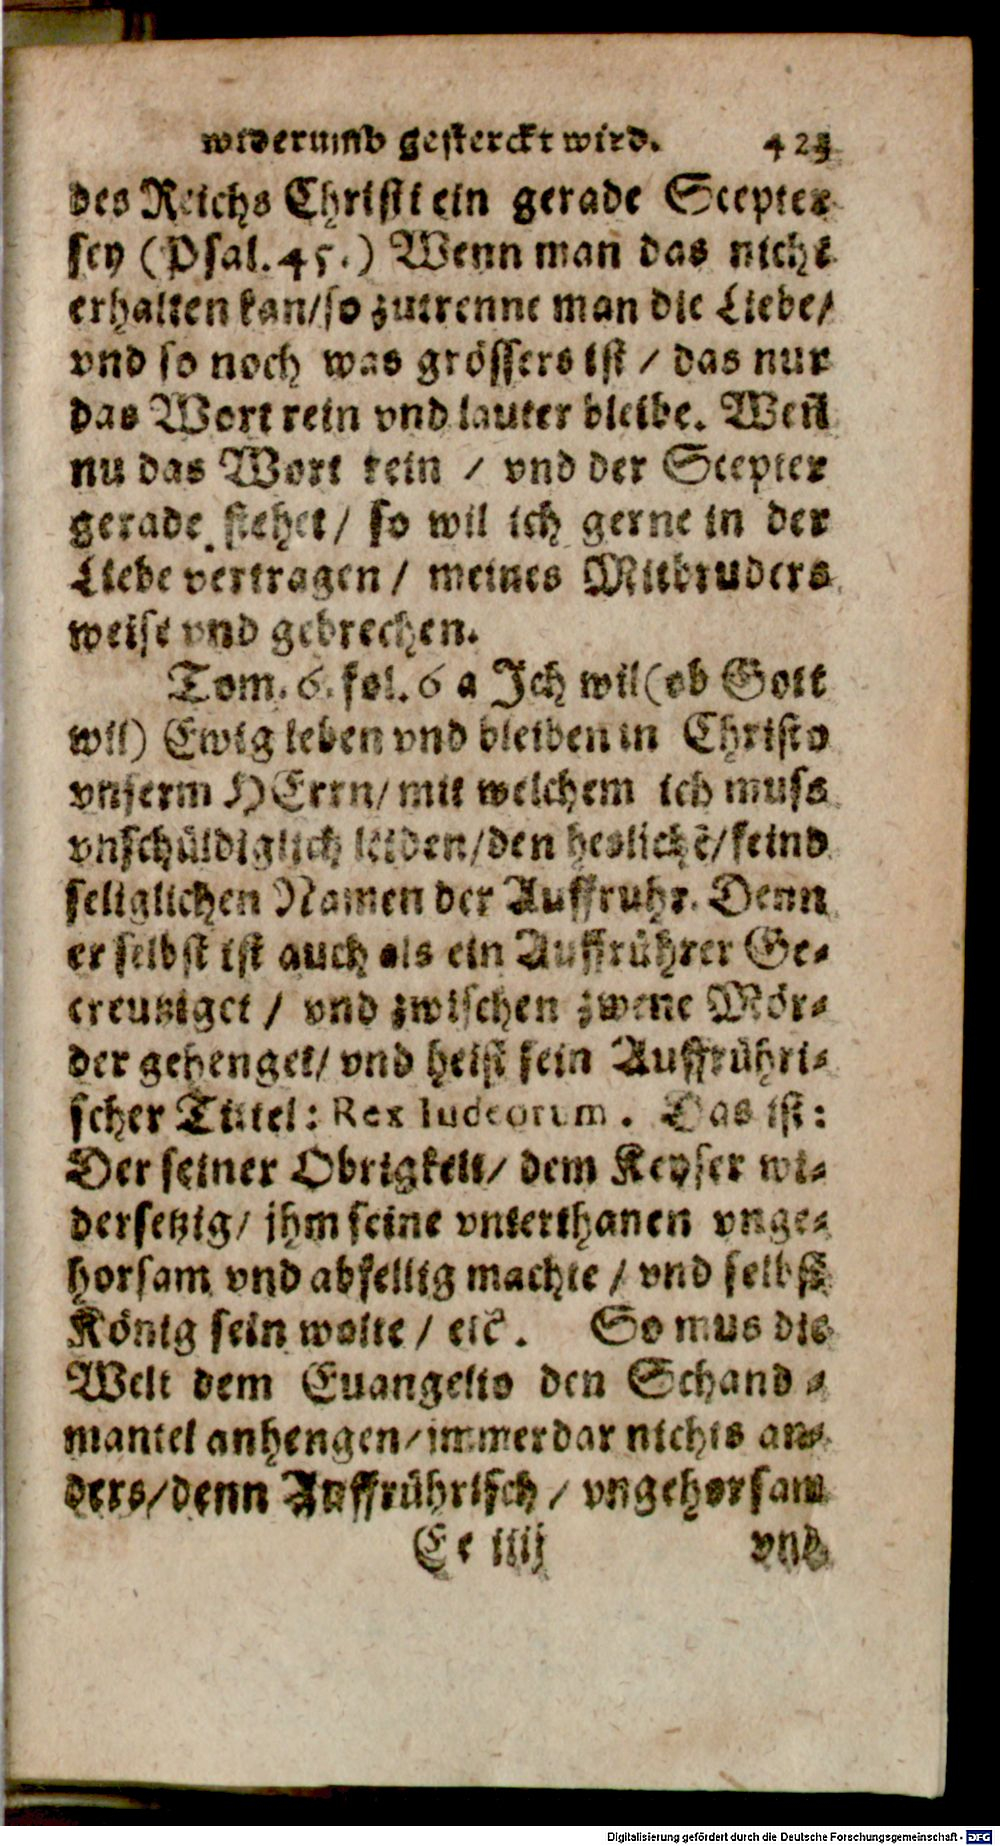 widerumb gesterckt wird. 423
des Reichs Christi ein gerade Scepter
sey (Psal. 45.) Wenn man das nicht
erhalten kan/so zutrenne man die Liebe/
vnd so noch was grössers ist / das nur
das Wort rein vnd lauter bleibe. Weñ
nu das Wort rein / vnd der Scepter
gerade stehet/ so wil ich gerne in der
Liebe vertragen / meines Mitbruders
weise vnd gebrechen.
Tom. 6. fol. 6 a Jch wil (ob Gott
wil) Ewig leben vnd bleiben in Christo
vnserm HErrn/ mit welchem ich muss
vnschüldiglich leiden/den heslichē/feind
seliglichen Namen der Auffruhr. Denn
er selbst ist auch als ein Auffrührer Ge-
creutziget / vnd zwischen zwene Mör-
der gehenget/ vnd heist sein Auffrühri-
scher Tittel: Rex Iudeorum. Das ist:
Der seiner Obrigkeit/ dem Keyser wi-
dersetzig/ jhm seine vnterthanen vnge-
horsam vnd abfellig machte / vnd selbst
König sein wolte / etc̃. So mus die
Welt dem Euangelio den Schand-
mantel anhengen/immerdar nichts an-
ders/denn Auffrührisch / vngehorsam
Ee iiij vnd
Digitalisierung gefördert durch die Deutsche Forschungsgemeinschaft - DFG